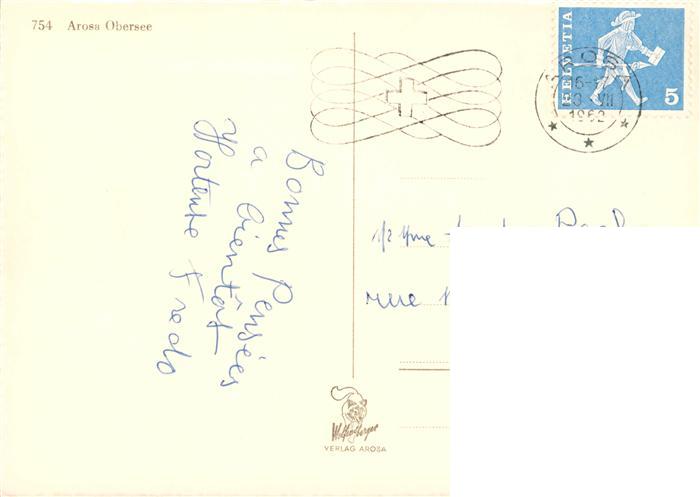 754 Arosa Obersee
HELVETIA
5
AROSA
20 VII
1962
Bonnes Pensées
a bientôt
Hortense Fredo
rue
VERLAG AROSA